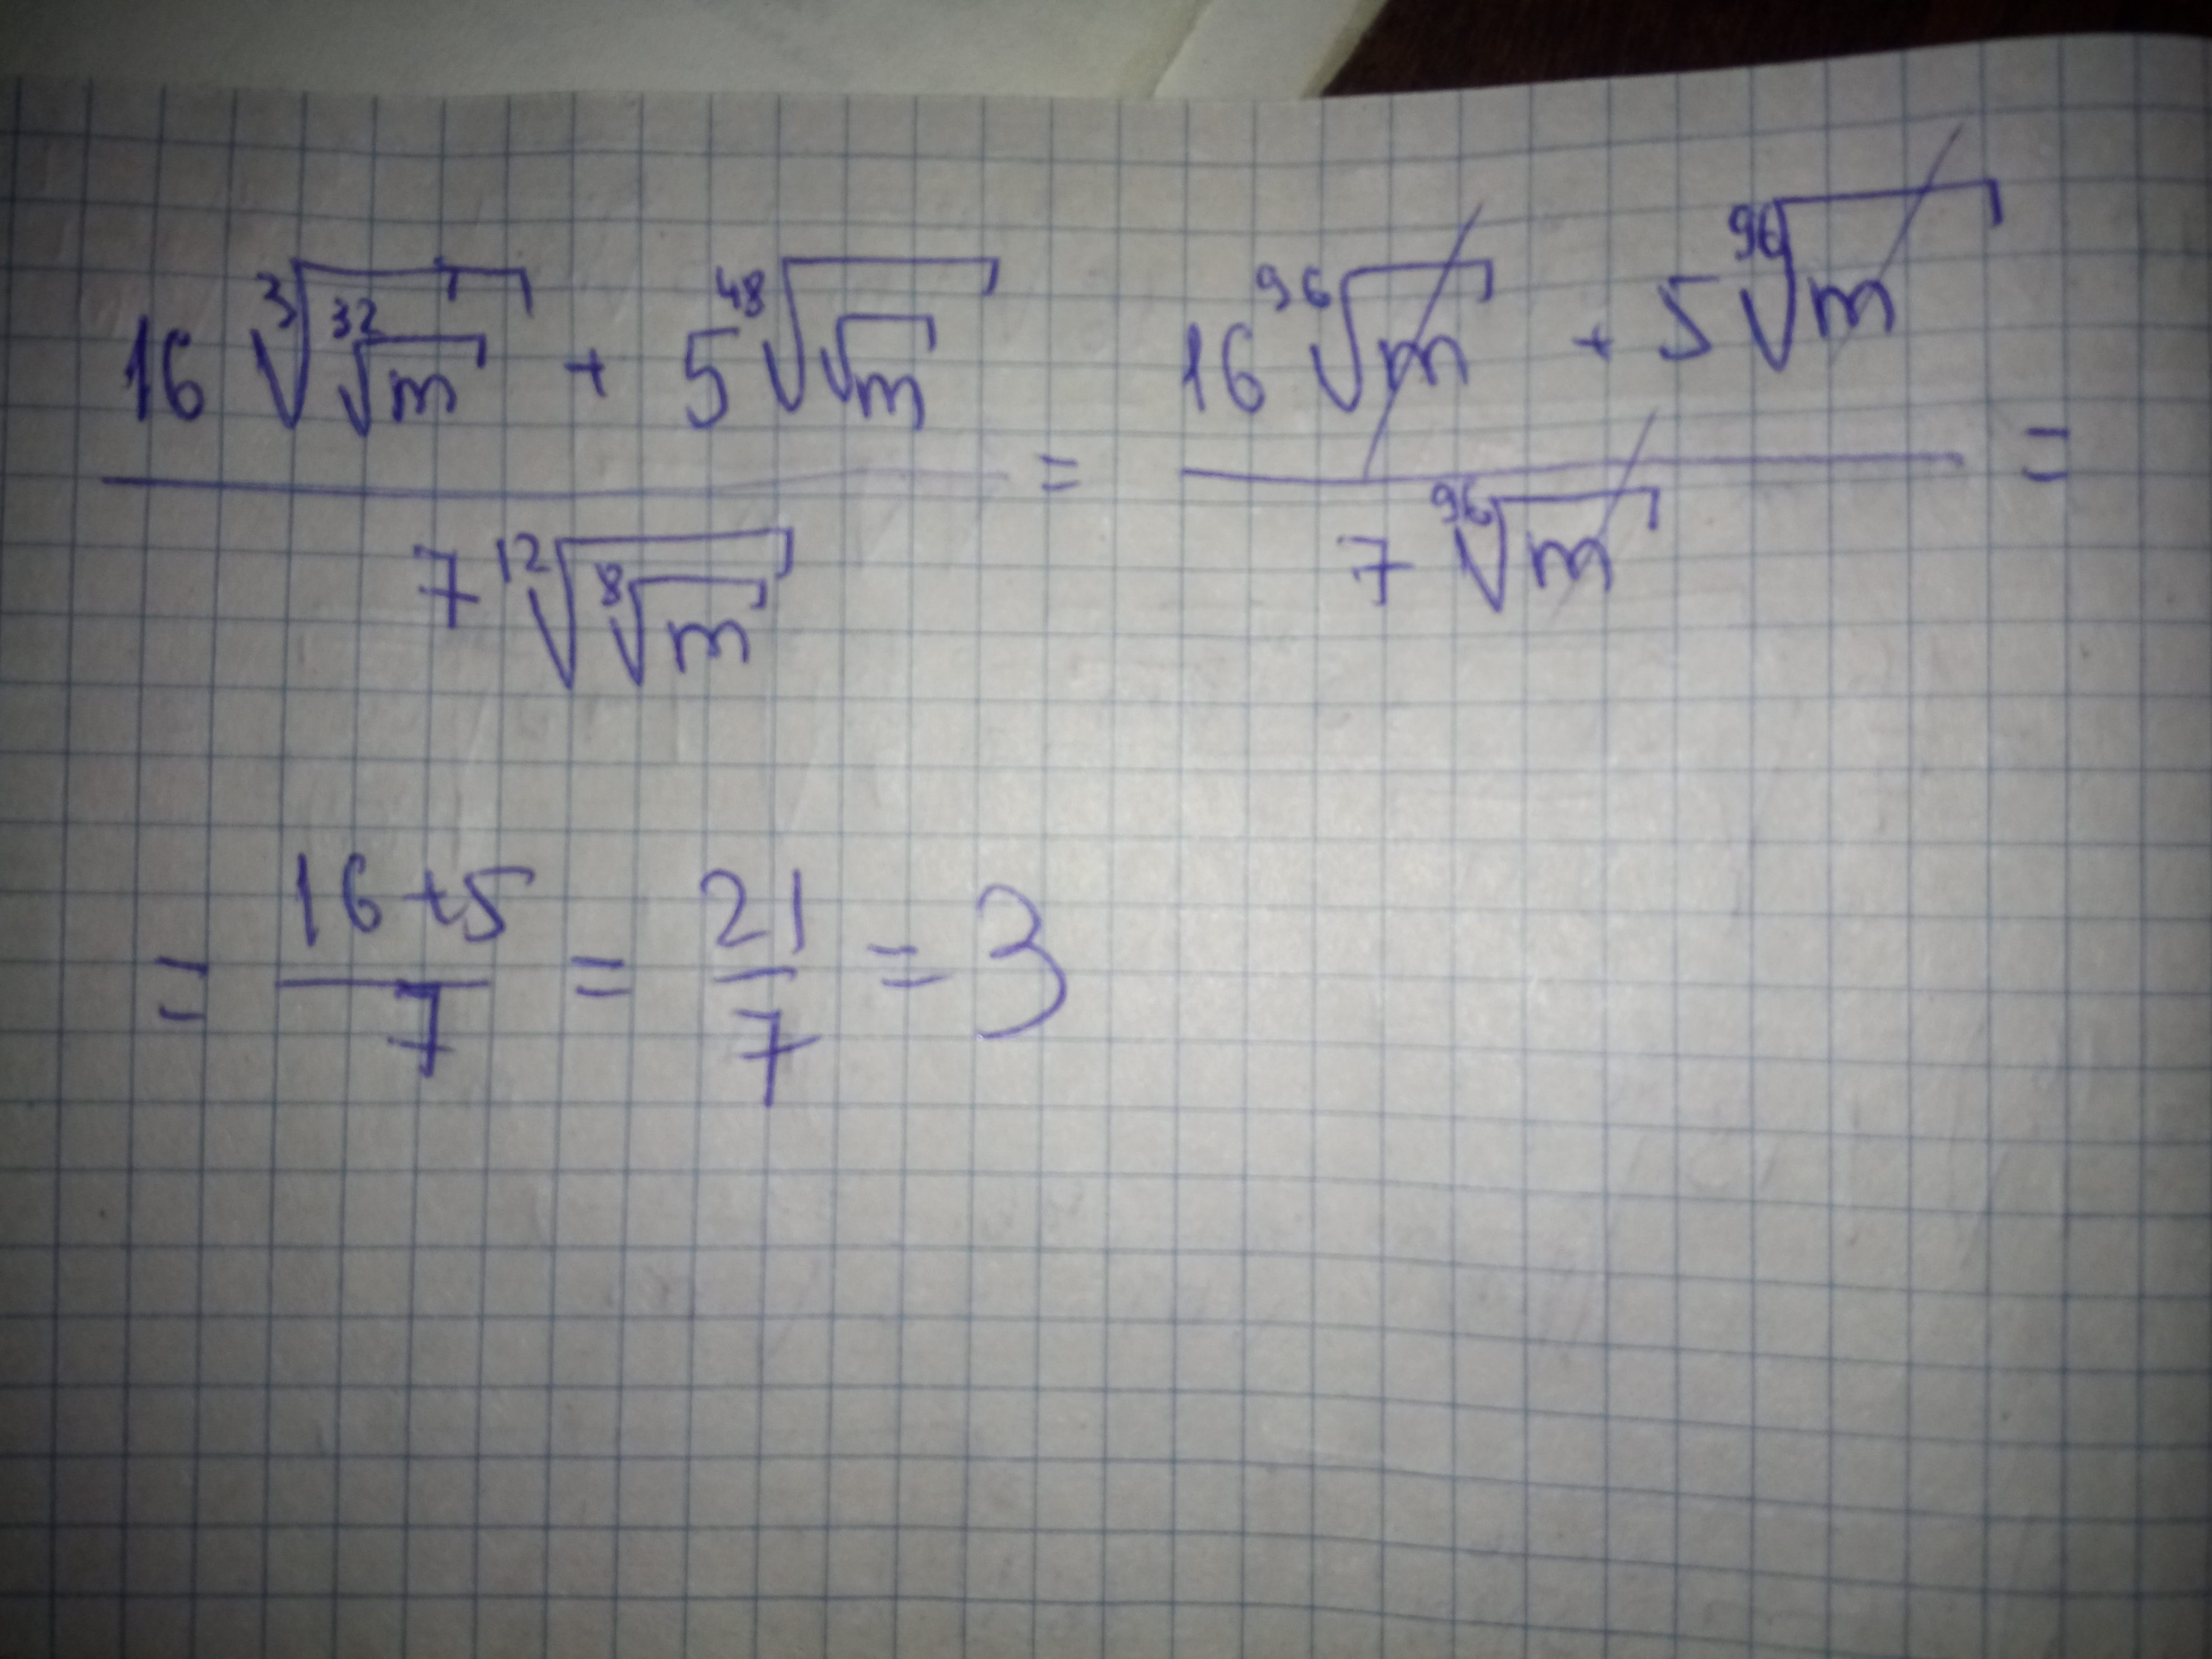 \frac{16\sqrt[3]{\sqrt[32]{m}} + 5\sqrt[48]{\sqrt{m}}}{7\sqrt[12]{\sqrt[8]{m}}} = \frac{16\sqrt[96]{m} + 5\sqrt[96]{m}}{7\sqrt[96]{m}} =
= \frac{16+5}{7} = \frac{21}{7} = 3